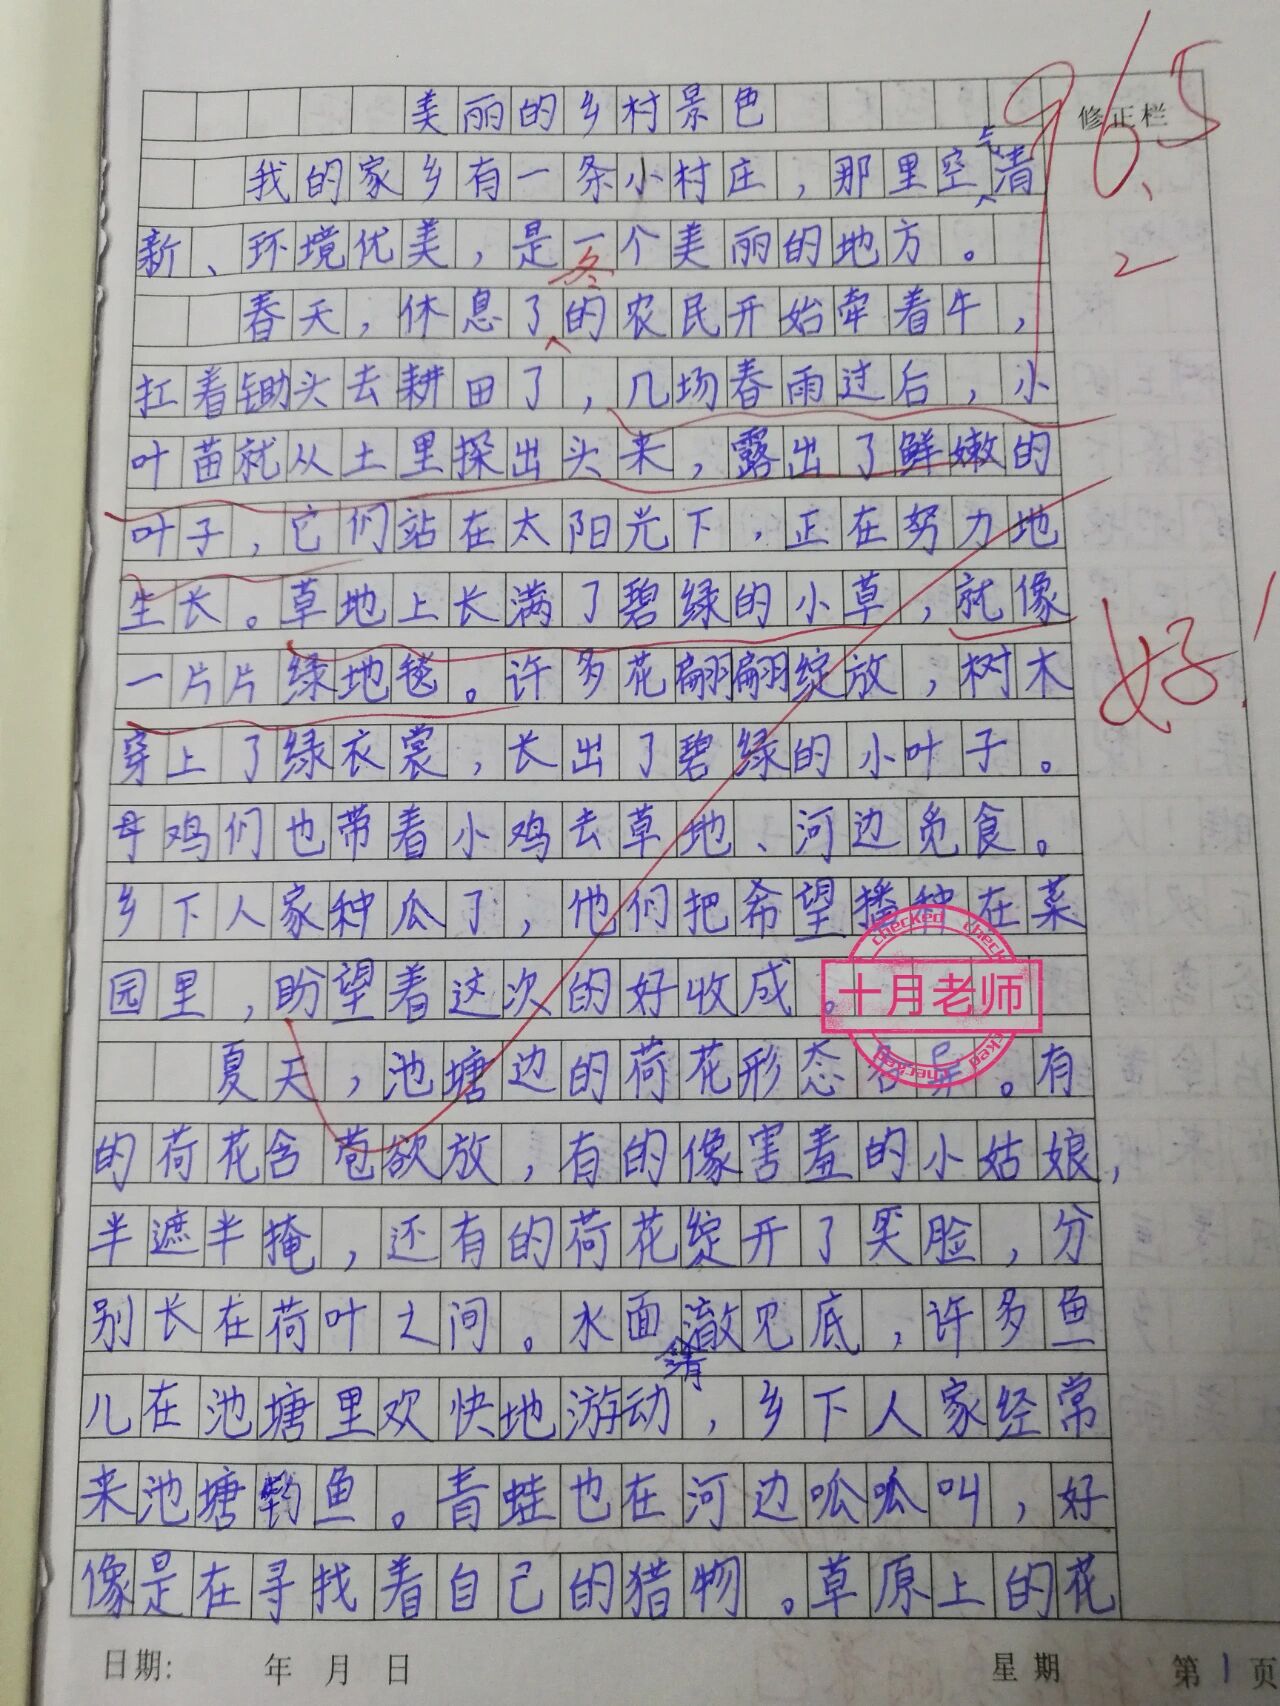 美丽的乡村景色
修正栏
96.5
我的家乡有一条小村庄，那里空气清
新、环境优美，是一个美丽的地方。
2
春天，休息了冬的农民开始牵着牛，
扛着锄头去耕田了，几场春雨过后，小
叶苗就从土里探出头来，露出了鲜嫩的
叶子，它们站在太阳光下，正在努力地
生长。草地上长满了碧绿的小草，就像
好！
一片片绿地毯。许多花翩翩绽放，树木
穿上了绿衣裳，长出了碧绿的小叶子。
母鸡们也带着小鸡去草地、河边觅食。
乡下人家种瓜了，他们把希望播种在菜
园里，盼望着这次的好收成。
checked check
十月老师
checked
夏天，池塘边的荷花形态各异。有
的荷花含苞欲放，有的像害羞的小姑娘，
半遮半掩，还有的荷花绽开了笑脸，分
别长在荷叶之间。水面清澈见底，许多鱼
儿在池塘里欢快地游动，乡下人家经常
来池塘钓鱼。青蛙也在河边呱呱叫，好
像是在寻找着自己的猎物。草原上的花
日期: 年 月 日
星期 第1页